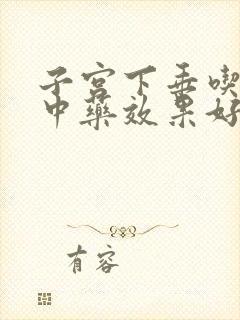 子宫下垂喫
中药效果好
有容